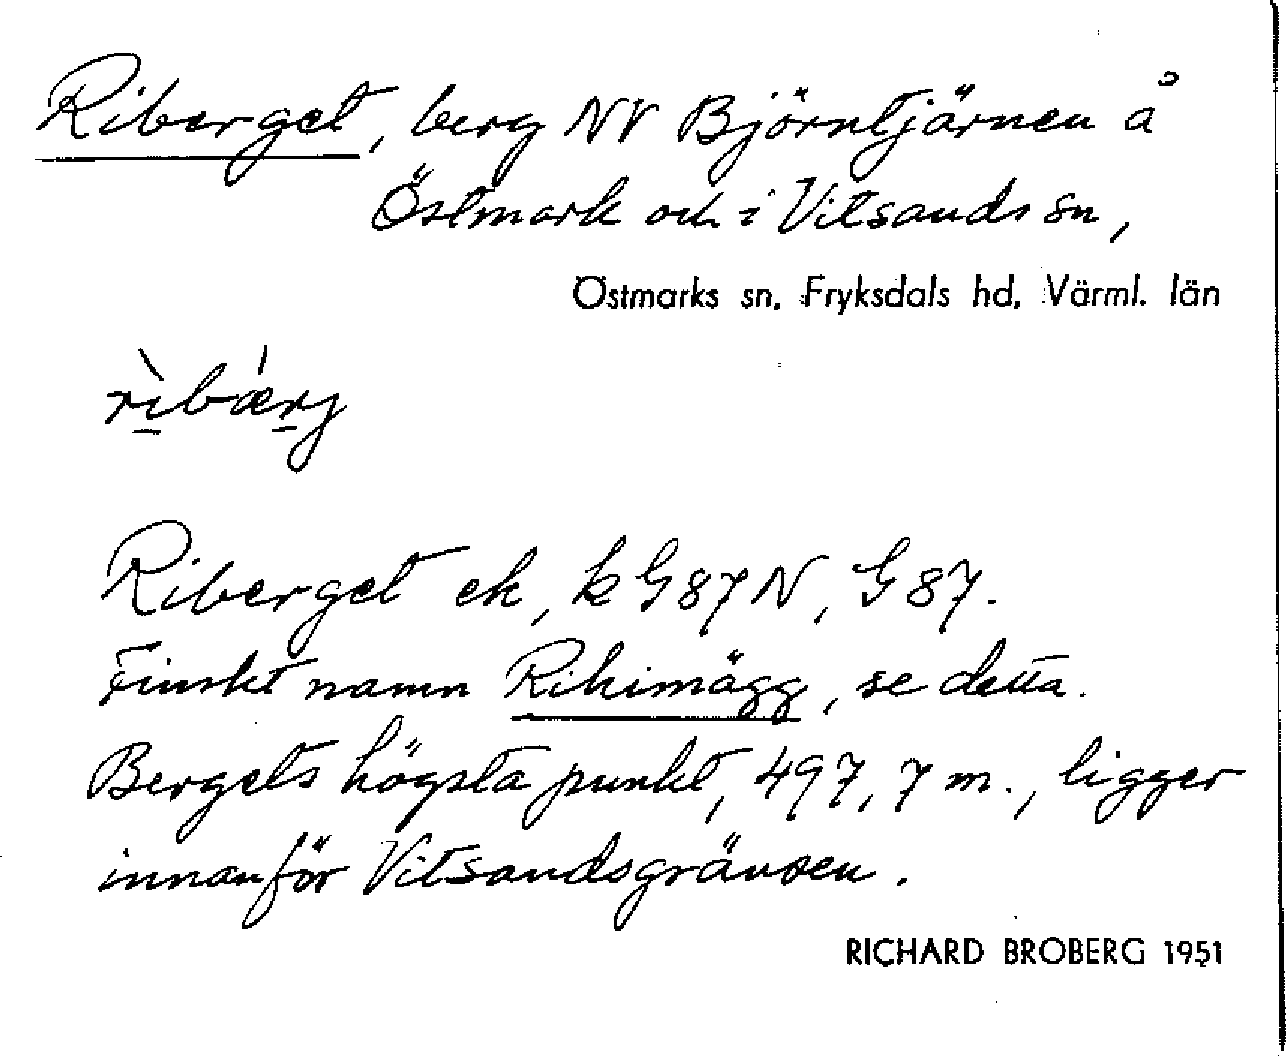 Riberget, berg NV Björntjärnen å
Östmark och i Vitsands sn,
Östmarks sn, Fryksdals hd, Värml. län
rìbǽrj
Riberget ek, k G87N, G87.
Finskt namn Rikimägg, se detta.
Bergets högsta punkt, 497,7 m., ligger
innanför Vitsandsgränsen.
RICHARD BROBERG 1951